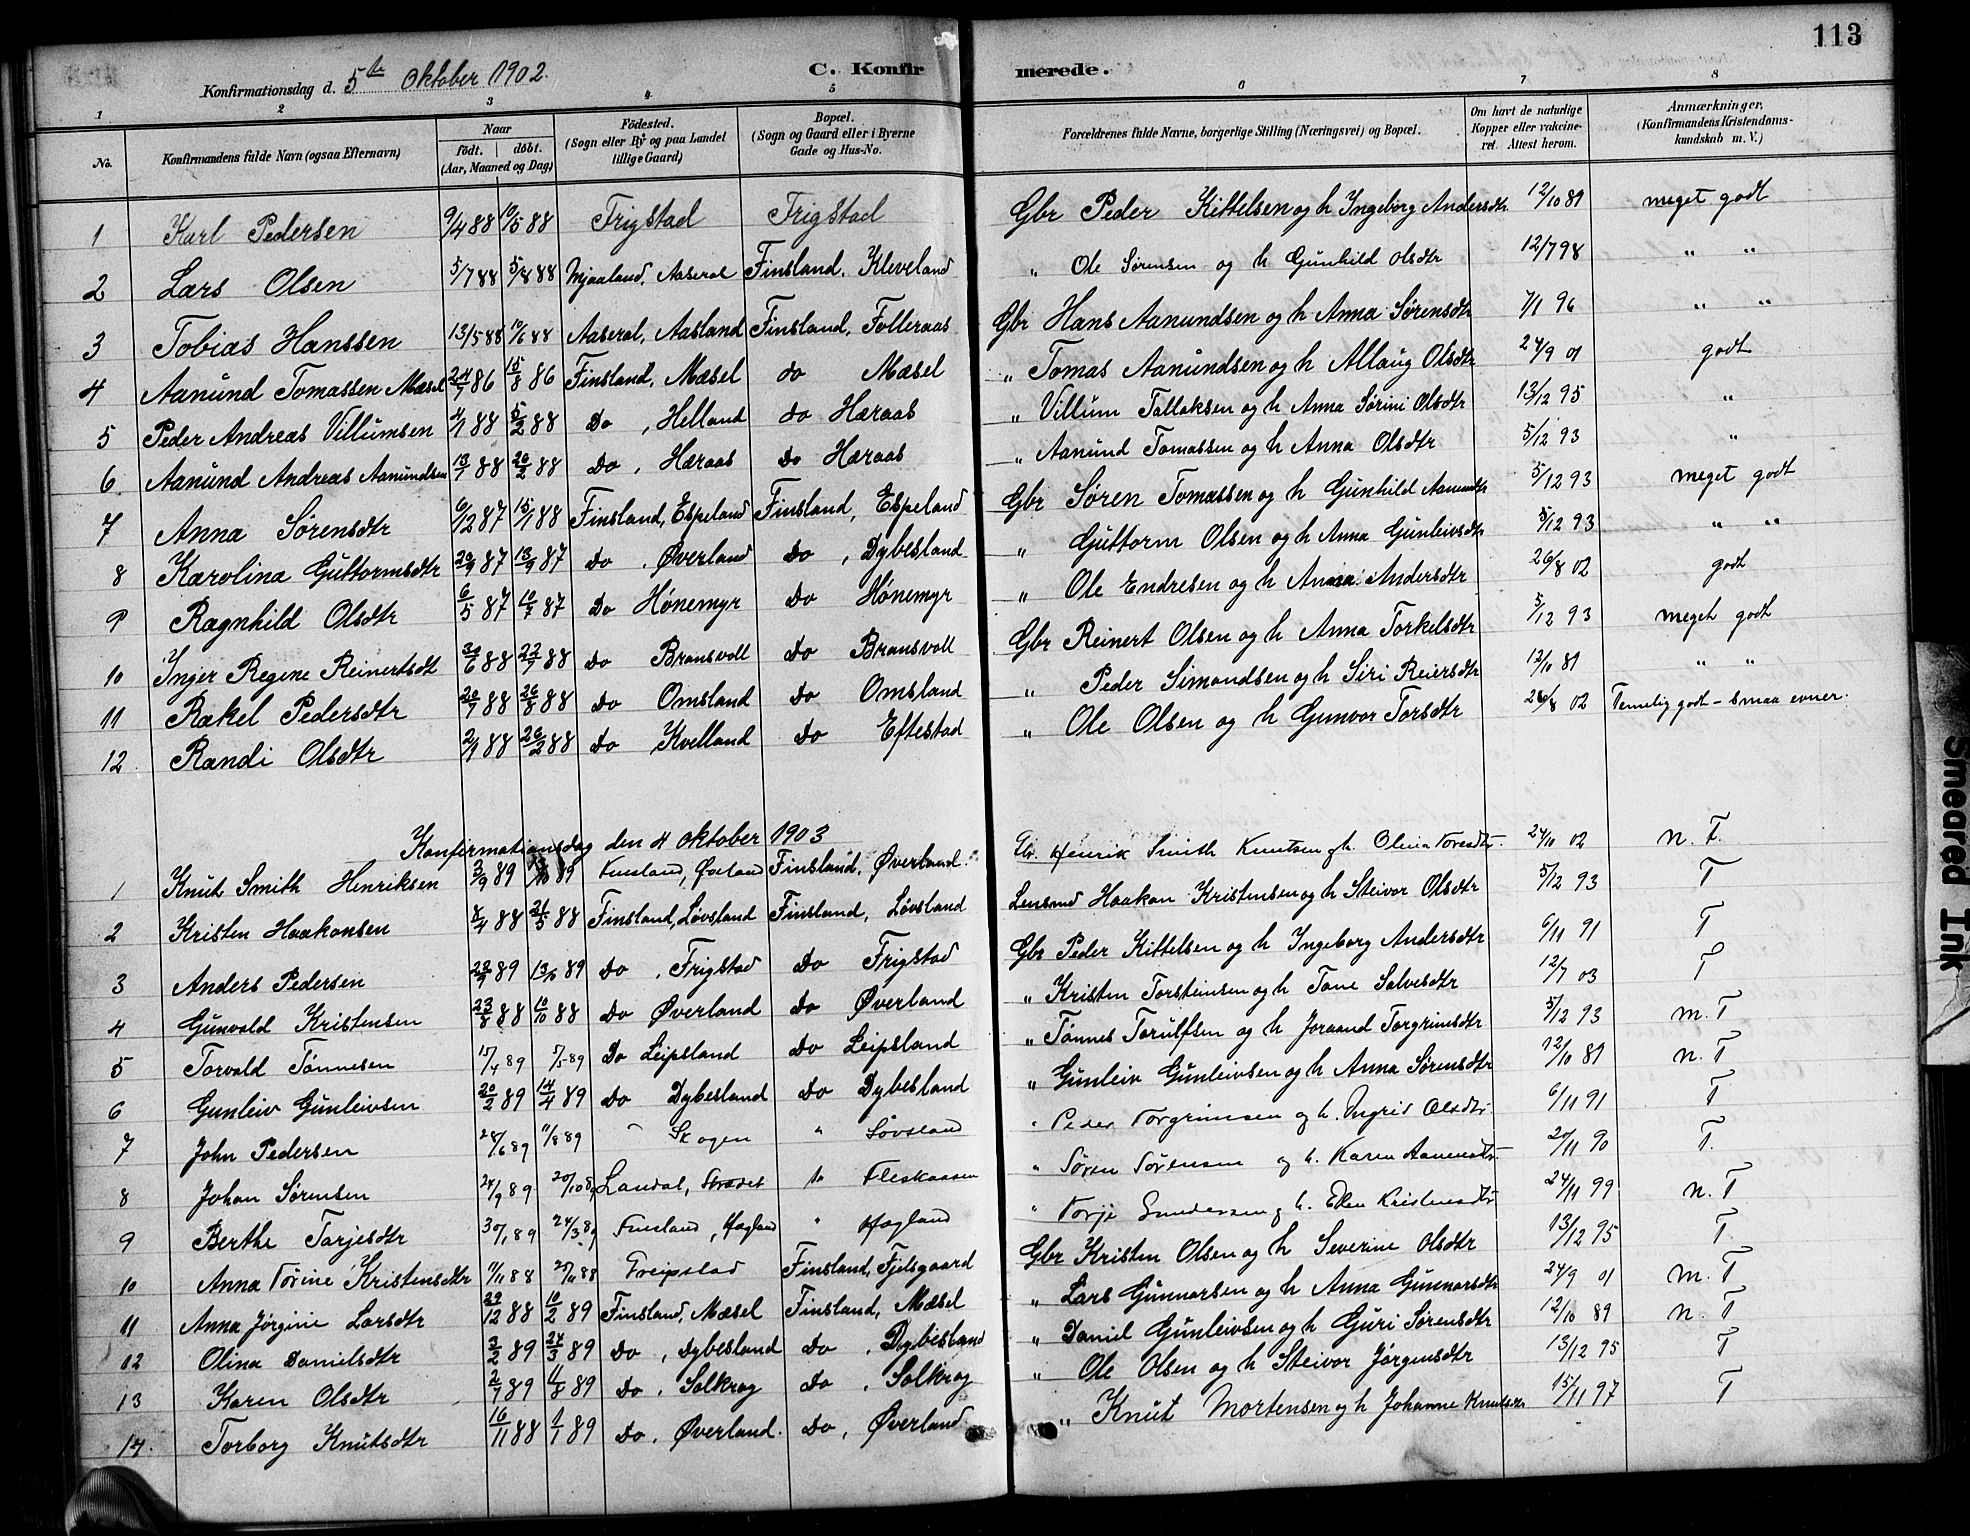 113
Konfirmationsdag d. 5te Oktober 1902. C. Konfirmerede.
1 2 3 4 5 6 7 8
No. Konfirmandens fulde Navn (ogsaa Efternavn) Naar født. døbt. (Aar, Maaned og Dag) Fødested. (Sogn eller By og paa Landet tillige Gaard) Bopæl. (Sogn og Gaard eller i Byerne Gade og Hus-No. Forældrenes fulde Navne, borgerlige Stilling (Næringsvei) og Bopæl. Om havt de naturlige Kopper eller vakcineret. Attest herom. Anmærkninger. (Konfirmandens Kristendomskundskab m. V.)
1 Karl Pedersen 9/4 88 10/5 88 Frigstad Frigstad Gbr Peder Kittelsen og h Ingeborg Andersdtr 12/10 89 meget godt
2 Lars Olsen 5/7 88 5/8 88 Mjaaland, Aaseral Finsland, Kleveland " Ole Sørensen og h Gunhild Olsdtr 12/7 98 " "
3 Tobias Hanssen 13/5 88 10/6 88 Aaseral, Aasland Finsland, Folleraas Gbr Hans Aanundsen og h Anna Sørensdtr 7/1 96 " "
4 Aanund Tomassen Mæsel 24/7 86 15/8 86 Finsland, Mæsel do Mæsel " Tomas Aanundsen og h Allaug Olsdtr 24/9 01 godt
5 Peder Andreas Villumsen 4/1 88 5/2 88 Do, Helland do Høraas " Villum Tallaksen og h Anna Sørini Olsdtr 13/12 95 "
6 Aanund Andreas Aanundsen 13/1 88 26/2 88 Do, Høraas Do Høraas " Aanund Tomassen og h Anna Olsdtr 5/12 93 "
7 Anna Sørensdtr 6/12 87 15/1 88 Finsland, Espeland Finsland, Espeland Gbr Søren Tomassen og h Gunhild Aanundtr 5/12 93 meget godt
8 Karolina Guttormsdtr 87 13/9 87 Do, Øverland Do, Dybesland " Guttorm Olsen og h Anna Gunleivsdtr 5/12 93 " "
9 Ragnhild Olsdtr 6/5 87 87 Do Hønemyr Do Hønemyr " Ole Endresen og h Anna Andersdtr 26/8 02 godt
10 Inger Regine Reinertsdt 30/6 88 22/7 88 Do Bransvoll Do Bransvoll Gbr Reinert Olsen og h Anna Torkelsdtr 5/12 93 meget godt
11 Rakel Pedersdtr 20/7 88 26/8 88 Do Omsland Do Omsland " Peder Simondsen og h Siri Reiersdtr 12/10 89 " "
12. Randi Olsdtr 2/1 88 26/2 88 Do Kvelland Do Eftestad " Ole Olsen og h Gunvor Torsdtr 26/8 02 Temelig godt - smaa evner.
Konfirmationsdag den 4 Oktober 1903
1 Knut Smith Henriksen 3/9 89 89 Finsland, Øverland Finsland, Øverland. Henrik Smith Knutsen og h. Olina Toresdtr. 24/10 02 n. T.
2 Kristen Haakonsen 8/4 88 21/5 88 Finsland, Løvsland Finsland, Løvsland Lensmd Haakon Kristensen og h Steivor Olsdtr 5/12 93 T
3 Anders Pedersen 89 89 Do, Frigstad Do Frigstad Gbr Peder Kittelsen og h Ingeborg Andersdtr 6/11 91 T
4 Gunvald Kristensen 23/8 88 10/10 88 Do Øverland Do Øverland " Kristen Torsteinsen og h Tone Salvesdtr 12/7 03 T
5 Torvald Tønnesen 15/4 89 89 Do Leipsland Do Leipsland " Tønnes Torulfsen og h Joraand Torgrimsdtr 5/12 93 m. T
6 Gunleiv Gunleivsen 20/2 89 14/4 89 Do Dybesland Do Dybesland " Gunleiv Gunleivsen og h Anna Sørensdtr 12/10 89 n. T
7 John Pedersen 28/6 89 11/8 89 " Skogen " Løvsland " Peder Torgrimsen og h. Ingrid Olsdtr. 6/11 91 T
8 Johan Sørensen 24/9 89 20/10 89 Landal, do Fleskaasen " Søren Sørensen og h. Karen 20/11 90 T.
9 Berthe Tarjesdtr 30/1 89 24/3 89 Finsland, Hagland " Hagland " Torje Gundersen og h. Ellen Kristensdtr 24/11 99 n. T
10 Anna Tørine Kristensdtr 11/11 88 88 Finsland, Fjelsgaard Gbr Kristen Olsen og h Severine Olsdtr 13/12 95 T
11 Anna Jørgine Larsdtr 22/12 88 10/2 89 Finsland, Mæsel Finsland, Mæsel " Lars Gunnarsen og h Anna Gunnarsdtr 24/9 01 m. T
12 Olina Danielsdtr 2/2 89 24/3 89 Do, Dybesland Do, Dybesland " Daniel Gunleivsen og h Guri Sørensdtr 12/10 89 n. T
13 Karen Olsdtr 2/7 89 4/8 89 Do, Solkrog Do, Solkrog " Ole Olsen og h Steivor Jørgensdtr 13/12 95 T
14. Torborg Knutsdtr 16/11 88 1/1 89 Do, Øverland. Do, Øverland " Knut Mortensen og h Johanne Knutsdtr 15/11 97 T
Smeared Ink